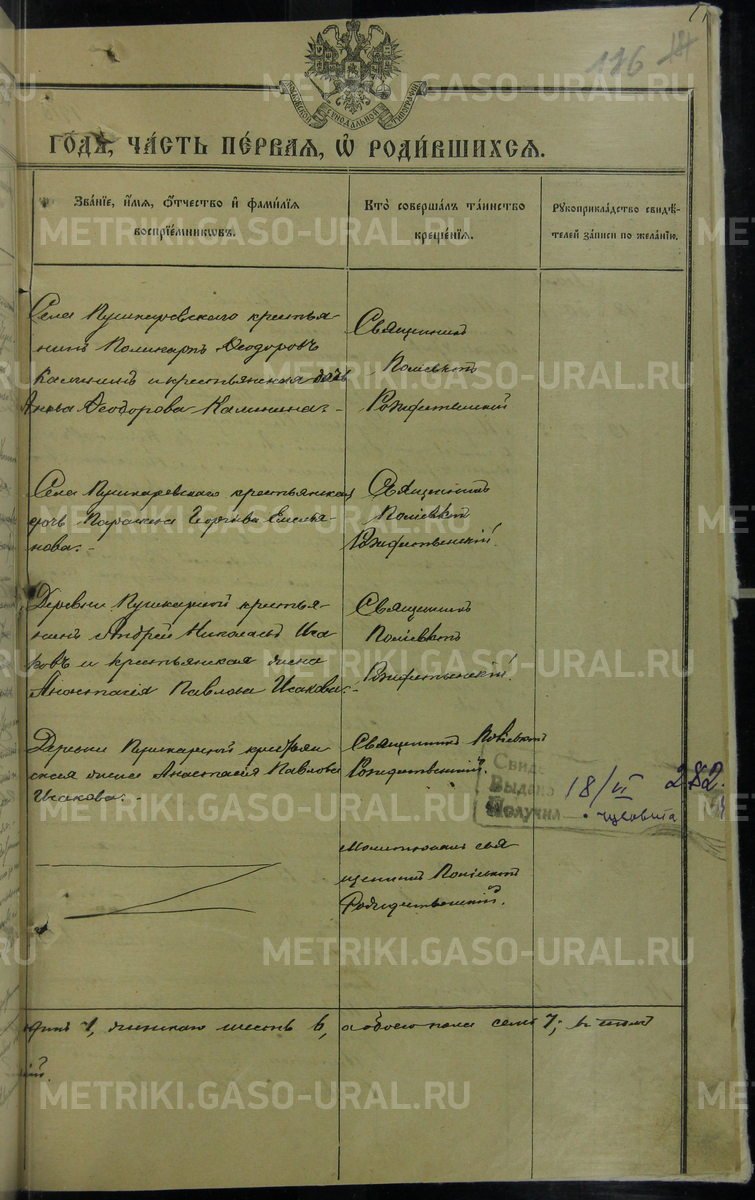 126
МОСКОВСКОЙ СѴНОДАЛЬНОЙ ТИПОГРАФІИ
ГО́ДЪ, ЧА́СТЬ ПЕ́РВАЯ, Ѡ҆ РОДИ́ВШИХСѦ.
Зва́нїе, и҆́мѧ, ѻ҆́тчество и҆ фами́лїѧ
воспрїе́мникѡвъ.
Кто̀ соверша́лъ та́инство
креще́нїѧ.
Рꙋкоприкла́дство свидѣ́-
телей за́писи по жела́нїю.
Села Пушкаревскаго крестья-
нинъ Поликарпъ Ѳеодоровъ
Калининъ и крестьянская дочь
Анна Ѳеодорова Калинина.-
Священникъ
Поліевктъ
Рождественскій
Села Пушкаревскаго крестьянская
дочь Параскева Емелья-
нова.-
Священникъ
Поліевктъ
Рождественскій.
Деревни Пушкарной крестья-
нинъ Андрей Николаевъ Иса
ковъ и крестьянская жена
Анастасія Павлова Исакова.-
Священникъ
Поліевктъ
Рождественскій.
Деревни Пушкарной крестьян
ская жена Анастасія Павлова
Исакова.-
Священникъ Поліевктъ
Рождественскій.
Свиде
Выдано
Получил
18/VI 282.
свя
щенникъ Поліевктъ
Рождественскій.
1, женскаго шесть 6, а обоего пола семь 7; въ томъ
METRIKI.GASO-URAL.RU